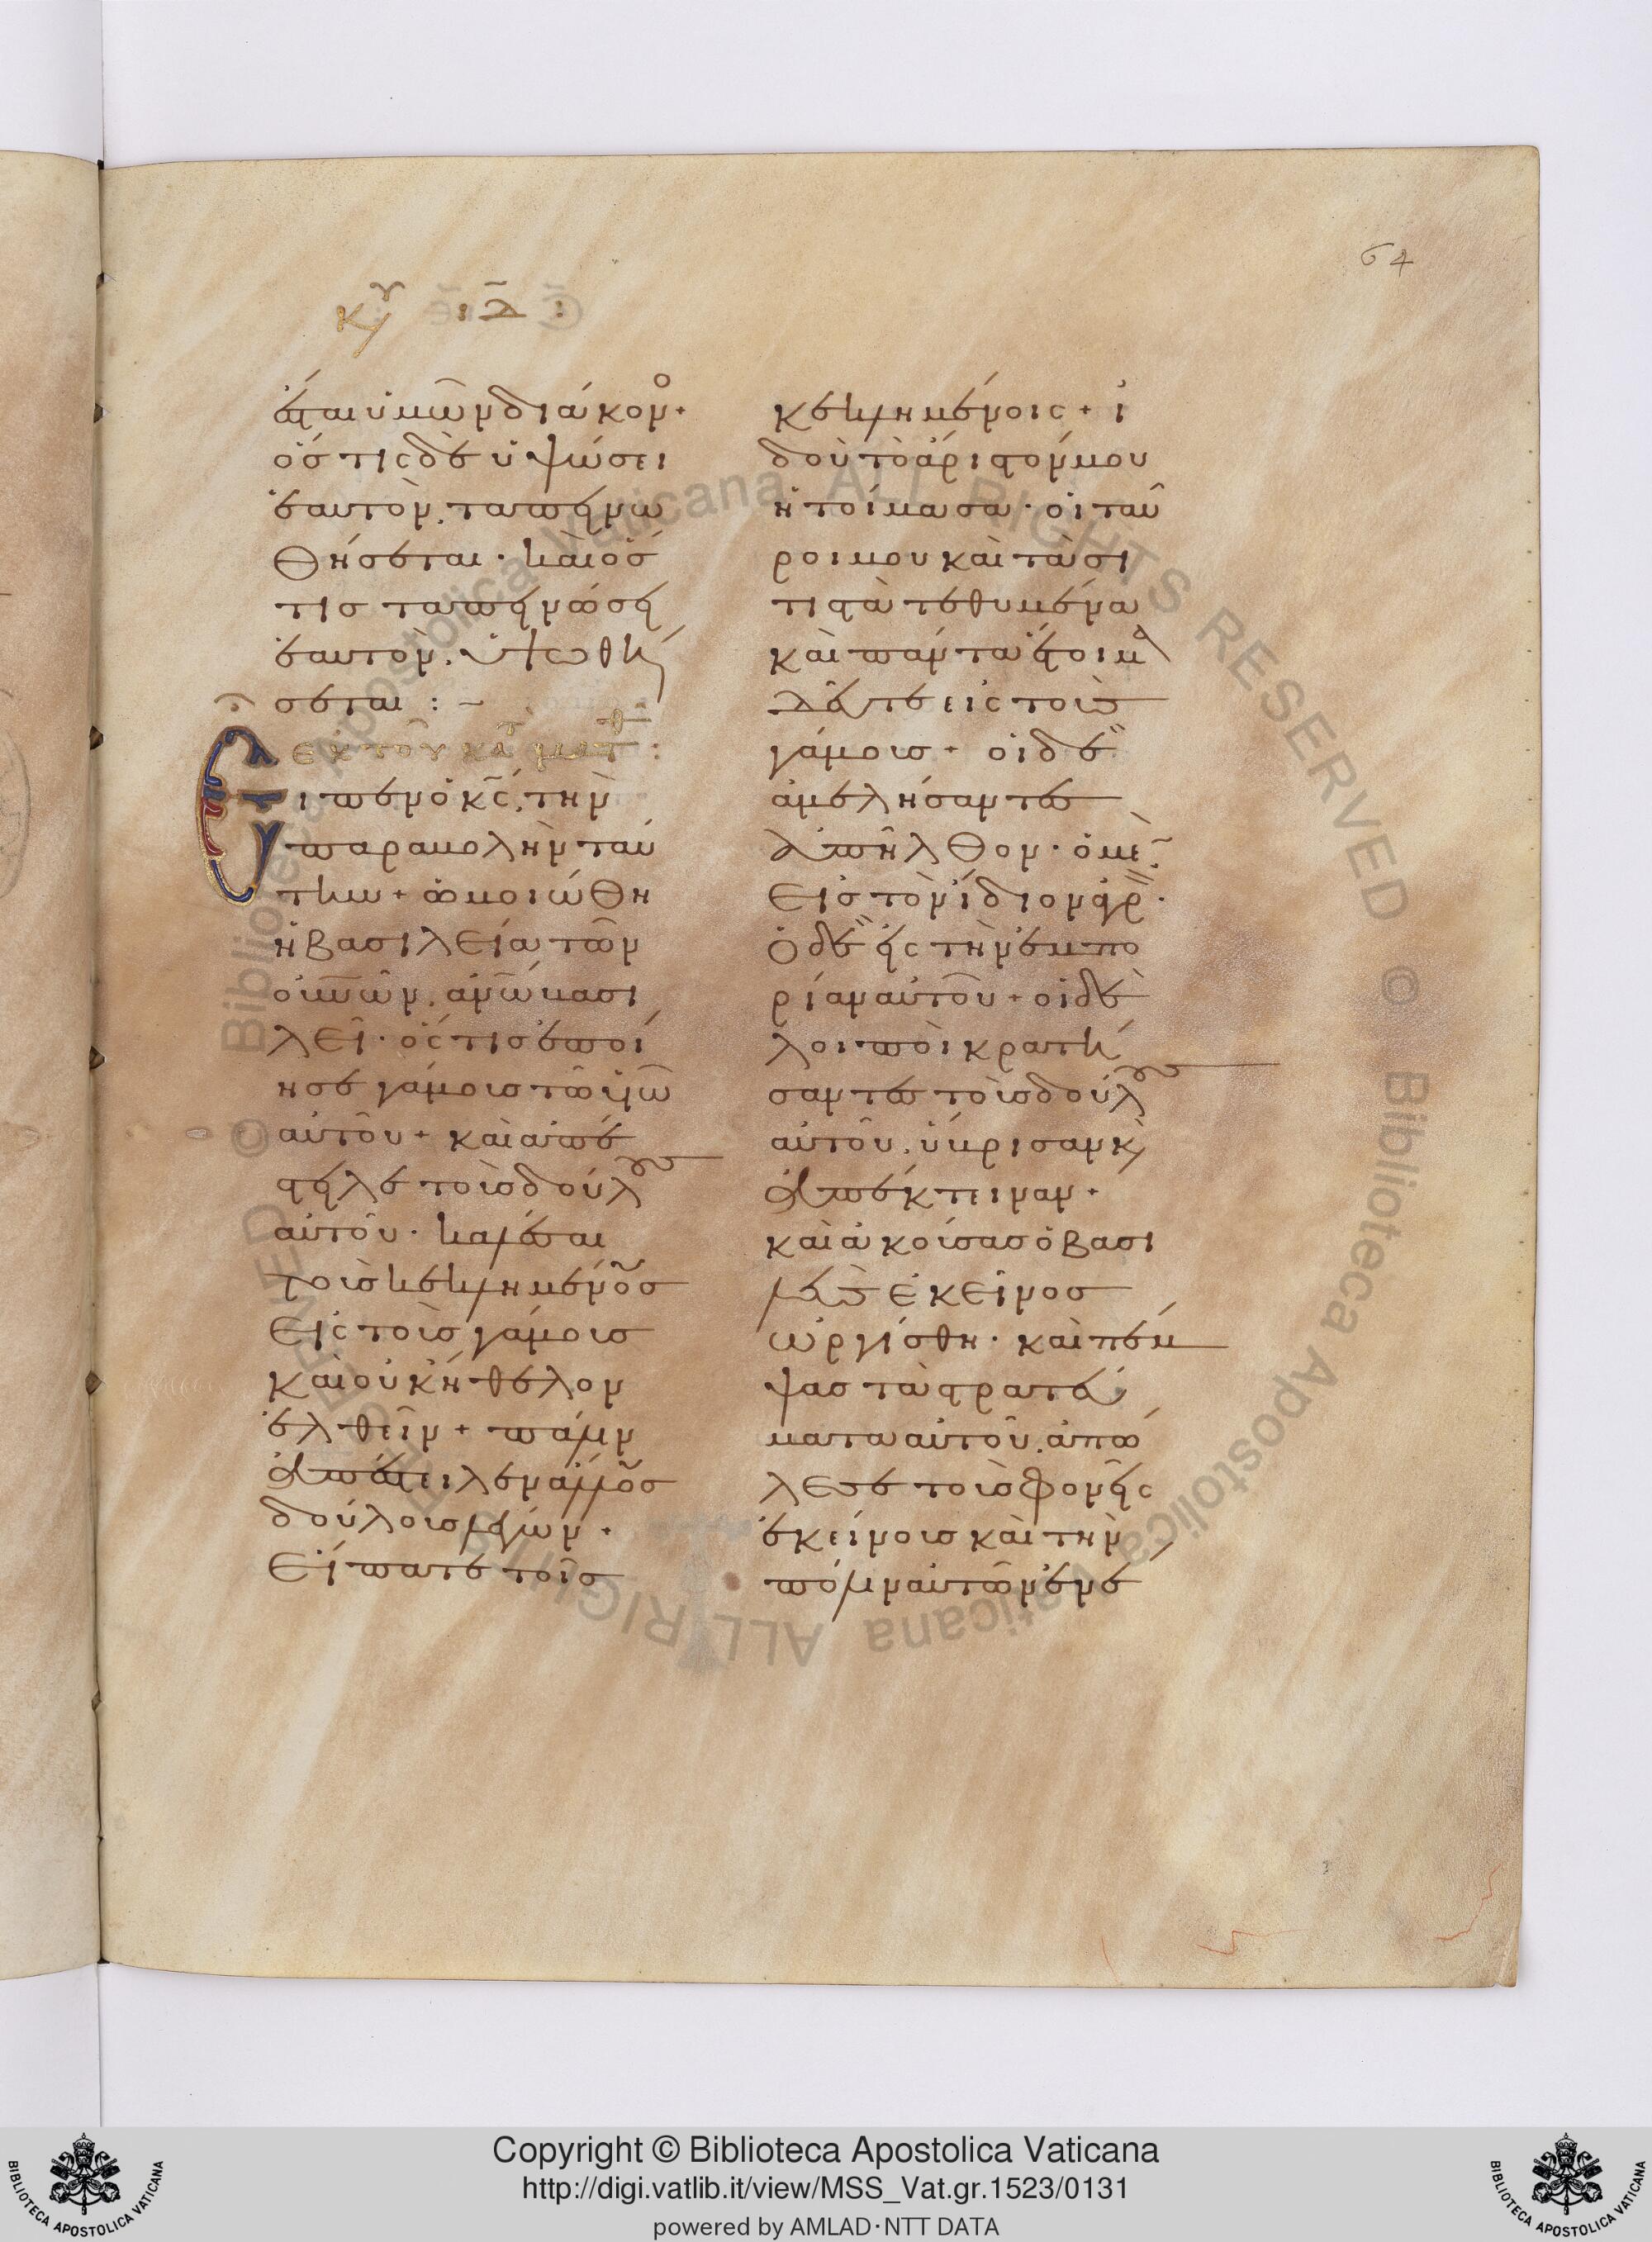 64
κυ ιδ :
ἔσται ὑμῶν διάκονο +
ὅστις δὲ ὑψώσει
ἑαυτὸν. ταπεινω
θήσεται · καὶ ὅσ
τισ ταπεινώσει
ἑαυτὸν. ὑψωθή
σεται : ~
ἐκ τοῦ κατ ματθ :
Εἶπεν ὁ κς, τὴν
παραβολὴν ταύ
την + ὡμοιώθη
ἡ βασιλεία τῶν
οὐνῶν. ἀνῶ βασι
λεῖ · ὅστισ ἐποί
ησε γάμουσ τῶ υἱῶ
αὐτοῦ + καὶ ἀπέ
στειλε τοὺσ δούλουσ
αὐτοῦ · καλέσαι
τοὺσ κεκλημένουσ
εἰς τοὺσ γάμουσ
καὶ οὐκ ἤθελον
ἐλθεῖν + πάλιν
ἀπέστειλεν ἄλλουσ
δούλουσ λέγων ·
Εἴπατε τοῖσ
κεκλημένοις + ἰ
δοὺ τὸ ἄριστόν μου
ἡτοίμασα · οἱ ταῦ
ροι μου καὶ τὰ σι
τιστὰ τεθυμένα
καὶ πάντα ἕτοιμα
δεῦτε εἰς τοὺσ
γάμουσ + οἱ δὲ
ἀμελήσαντεσ
ἀπῆλθον · ὁ μὲν
εἰσ τὸν ἴδιον ἀγρ ·
Ὁ δὲ εἰς τὴν ἐμπο
ρίαν αὐτοῦ + οἱ δὲ
λοιποὶ κρατή
σαντεσ τοὺσ δούλουσ
αὐτοῦ. ὕβρισαν κὶ
ἀπέκτειναν +
καὶ ἀκούσασ ὁ βασι
λεὺσ ἐκεῖνοσ
ὠργίσθη · καὶ πέμ
ψασ τὰ στρατεύ
ματα αὐτοῦ. ἀπώ
λεσε τοὺσ φονεῖς
ἐκείνουσ καὶ τὴν
πόλιν αὐτῶν ἐνέ
Copyright © Biblioteca Apostolica Vaticana
http://digi.vatlib.it/view/MSS_Vat.gr.1523/0131
powered by AMLAD·NTT DATA
BIBLIOTECA APOSTOLICA VATICANA
BIBLIOTECA APOSTOLICA VATICANA
© Biblioteca Apostolica Vaticana ALL RIGHTS RESERVED © Biblioteca Apostolica Vaticana ALL RIGHTS RESERVED